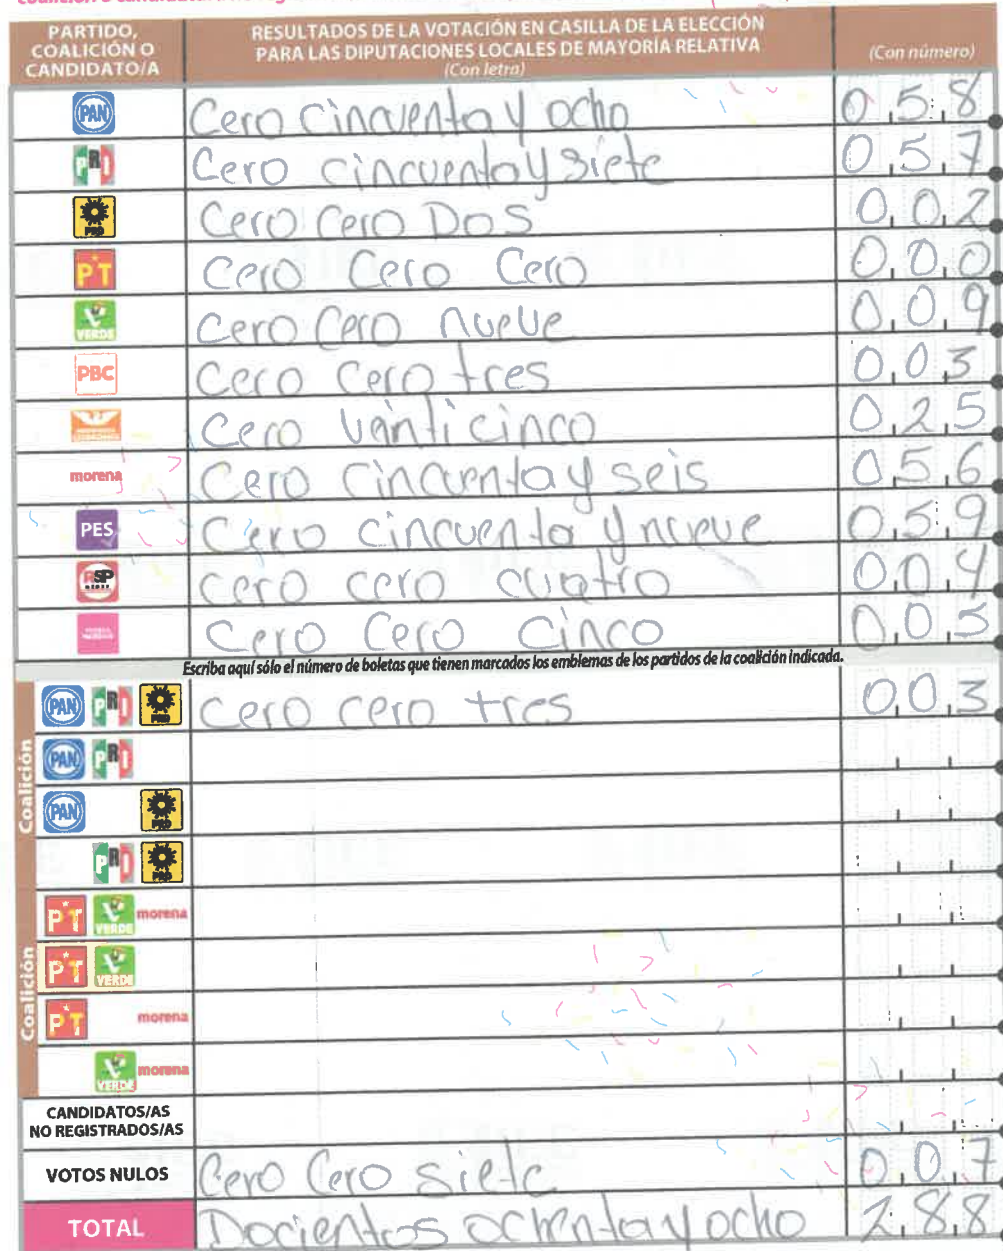 PARTIDO, COALICIÓN O CANDIDATO/A
RESULTADOS DE LA VOTACIÓN EN CASILLA DE LA ELECCIÓN PARA LAS DIPUTACIONES LOCALES DE MAYORÍA RELATIVA
(Con letra)
(Con número)
PAN Cero Cincuenta y ocho 0 5 8
PRI Cero cincuenta y siete 0 5 7
PRD Cero Cero Dos 0 0 2
PT Cero Cero Cero 0 0 0
VERDE Cero Cero nueve 0 0 9
PBC Cero Cero tres 0 0 3
Cero Vainti cinco 0 2 5
morena Cero Cincuenta y seis 0 5 6
PES Cero Cincuenta y nueve 0 5 9
RSP Cero cero cuatro 0 0 4
Cero Cero Cinco 0 0 5
Escriba aquí sólo el número de boletas que tienen marcados los emblemas de los partidos de la coalición indicada.
Coalición
PAN PRI PRD Cero cero tres 0 0 3
PAN PRI
PAN PRD
PRI PRD
Coalición
PT VERDE morena
PT VERDE
PT morena
VERDE morena
CANDIDATOS/AS NO REGISTRADOS/AS
VOTOS NULOS Cero Cero Siete 0 0 7
TOTAL Docientos ochenta y ocho 2 8 8